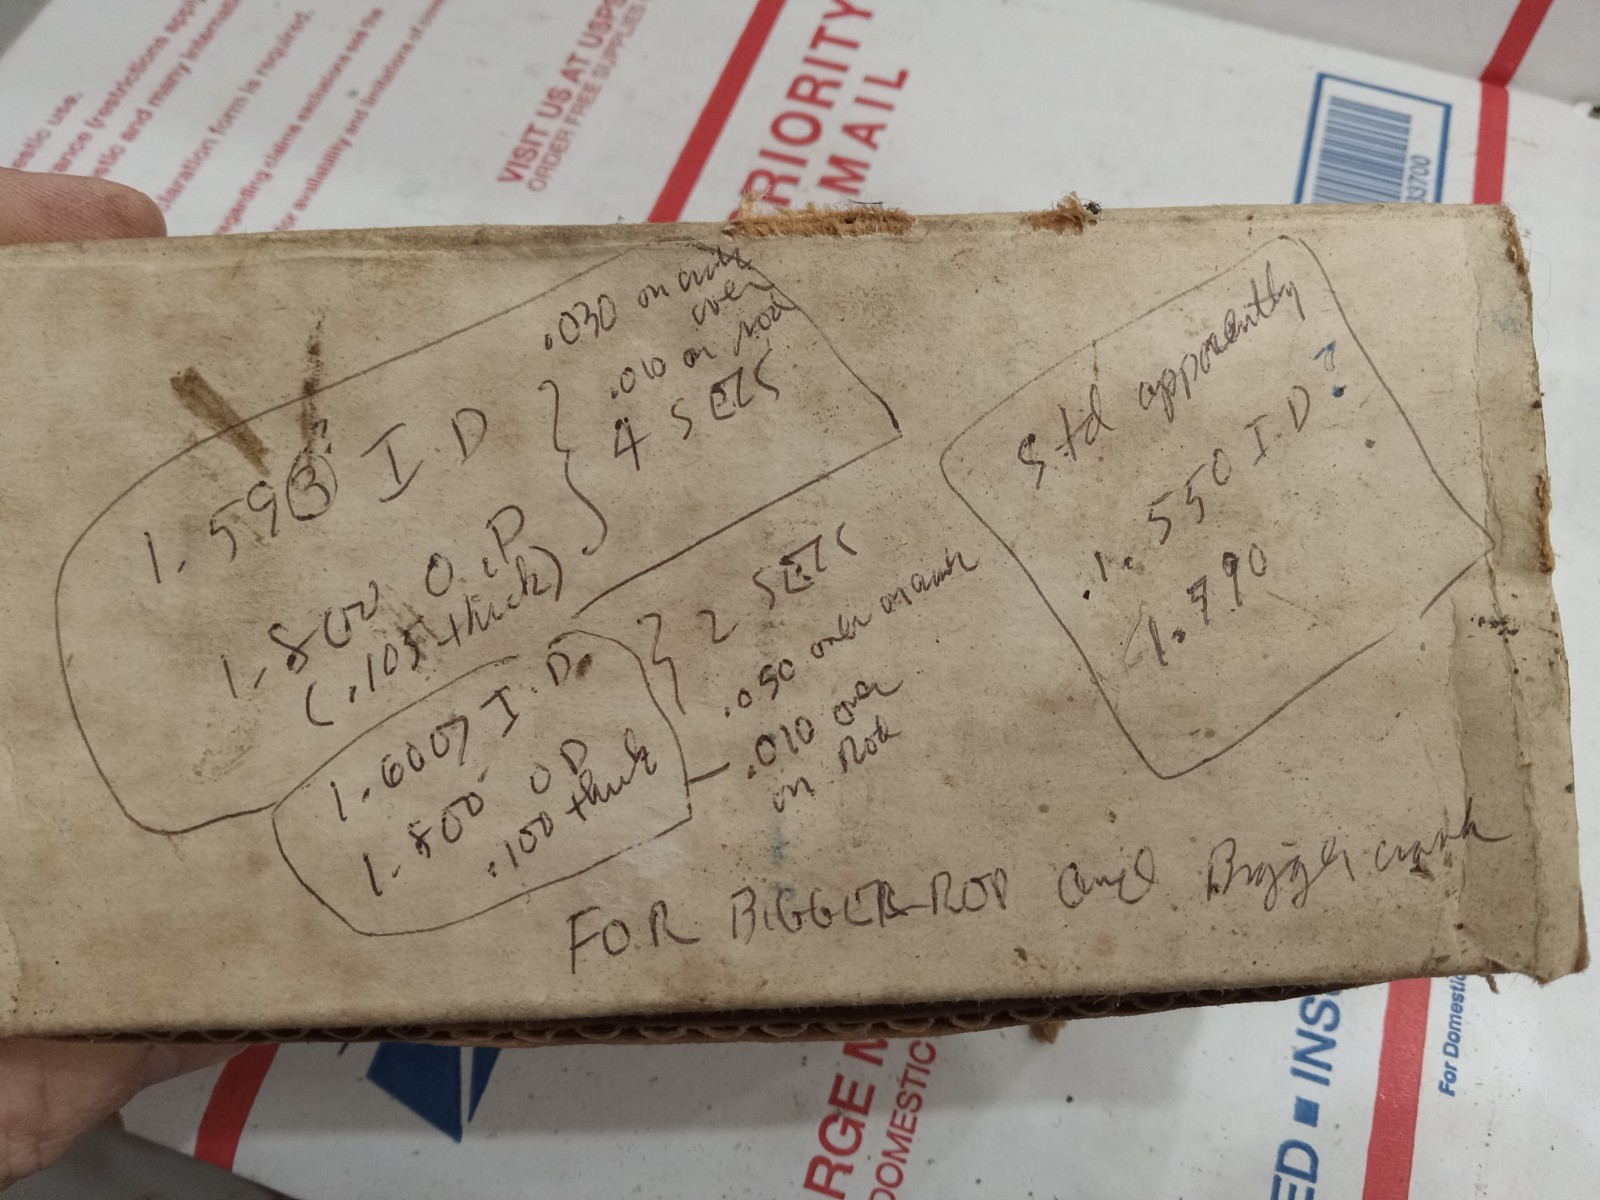 1.593 I.D
1.800 O.D
(.105 thick)
.030 on crank
over
.010 on rod
4 SETS
1.6007 I.D.
1.800 OD
.100 thick
2 SETS
.050 over on crank
.010 over
on Rod
Std apparently
1.550 I.D?
1.790
FOR BIGGER ROD and Bigger crank
PRIORITY
MAIL
VISIT US AT USPS
ORDER FREE SUPPLIES
estic use.
rance (restrictions apply
stic and many internati
claration form is required.
egarding claims exclusions see the
for availability and limitations of cove
33700
ARGE M
DOMESTIC
ED ■ INS
For Domestic